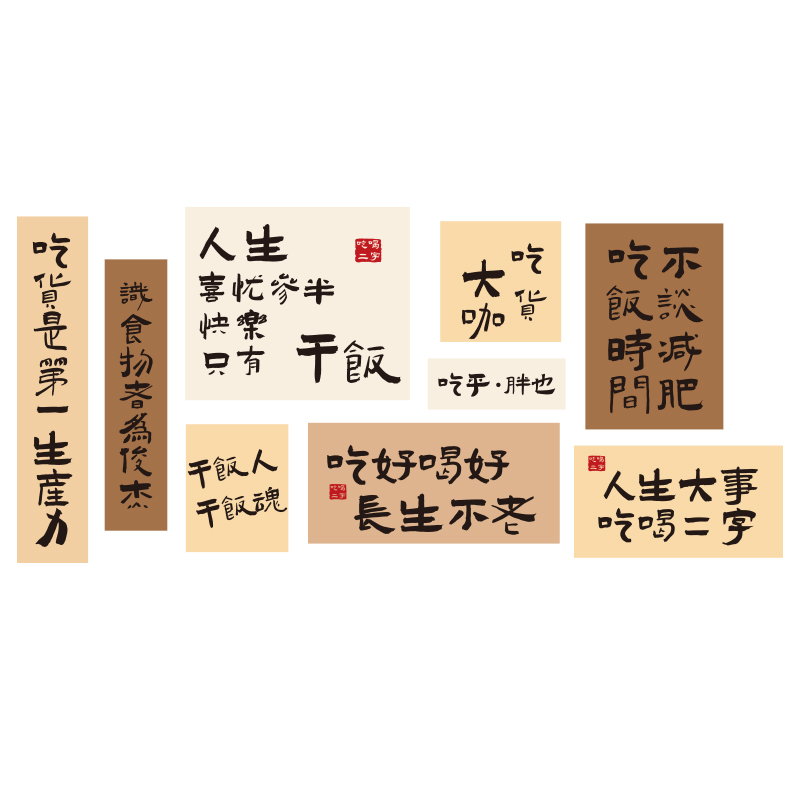 吃貨是第一生產力
識食物者為俊杰
人生
喜忧參半
快樂
只有干飯
吃喝
二字
干飯人
干飯魂
吃好喝好
長生不老
吃喝
二字
吃貨
大咖
吃乎·胖也
吃飯時間
不談減肥
吃喝
二字
人生大事
吃喝二字